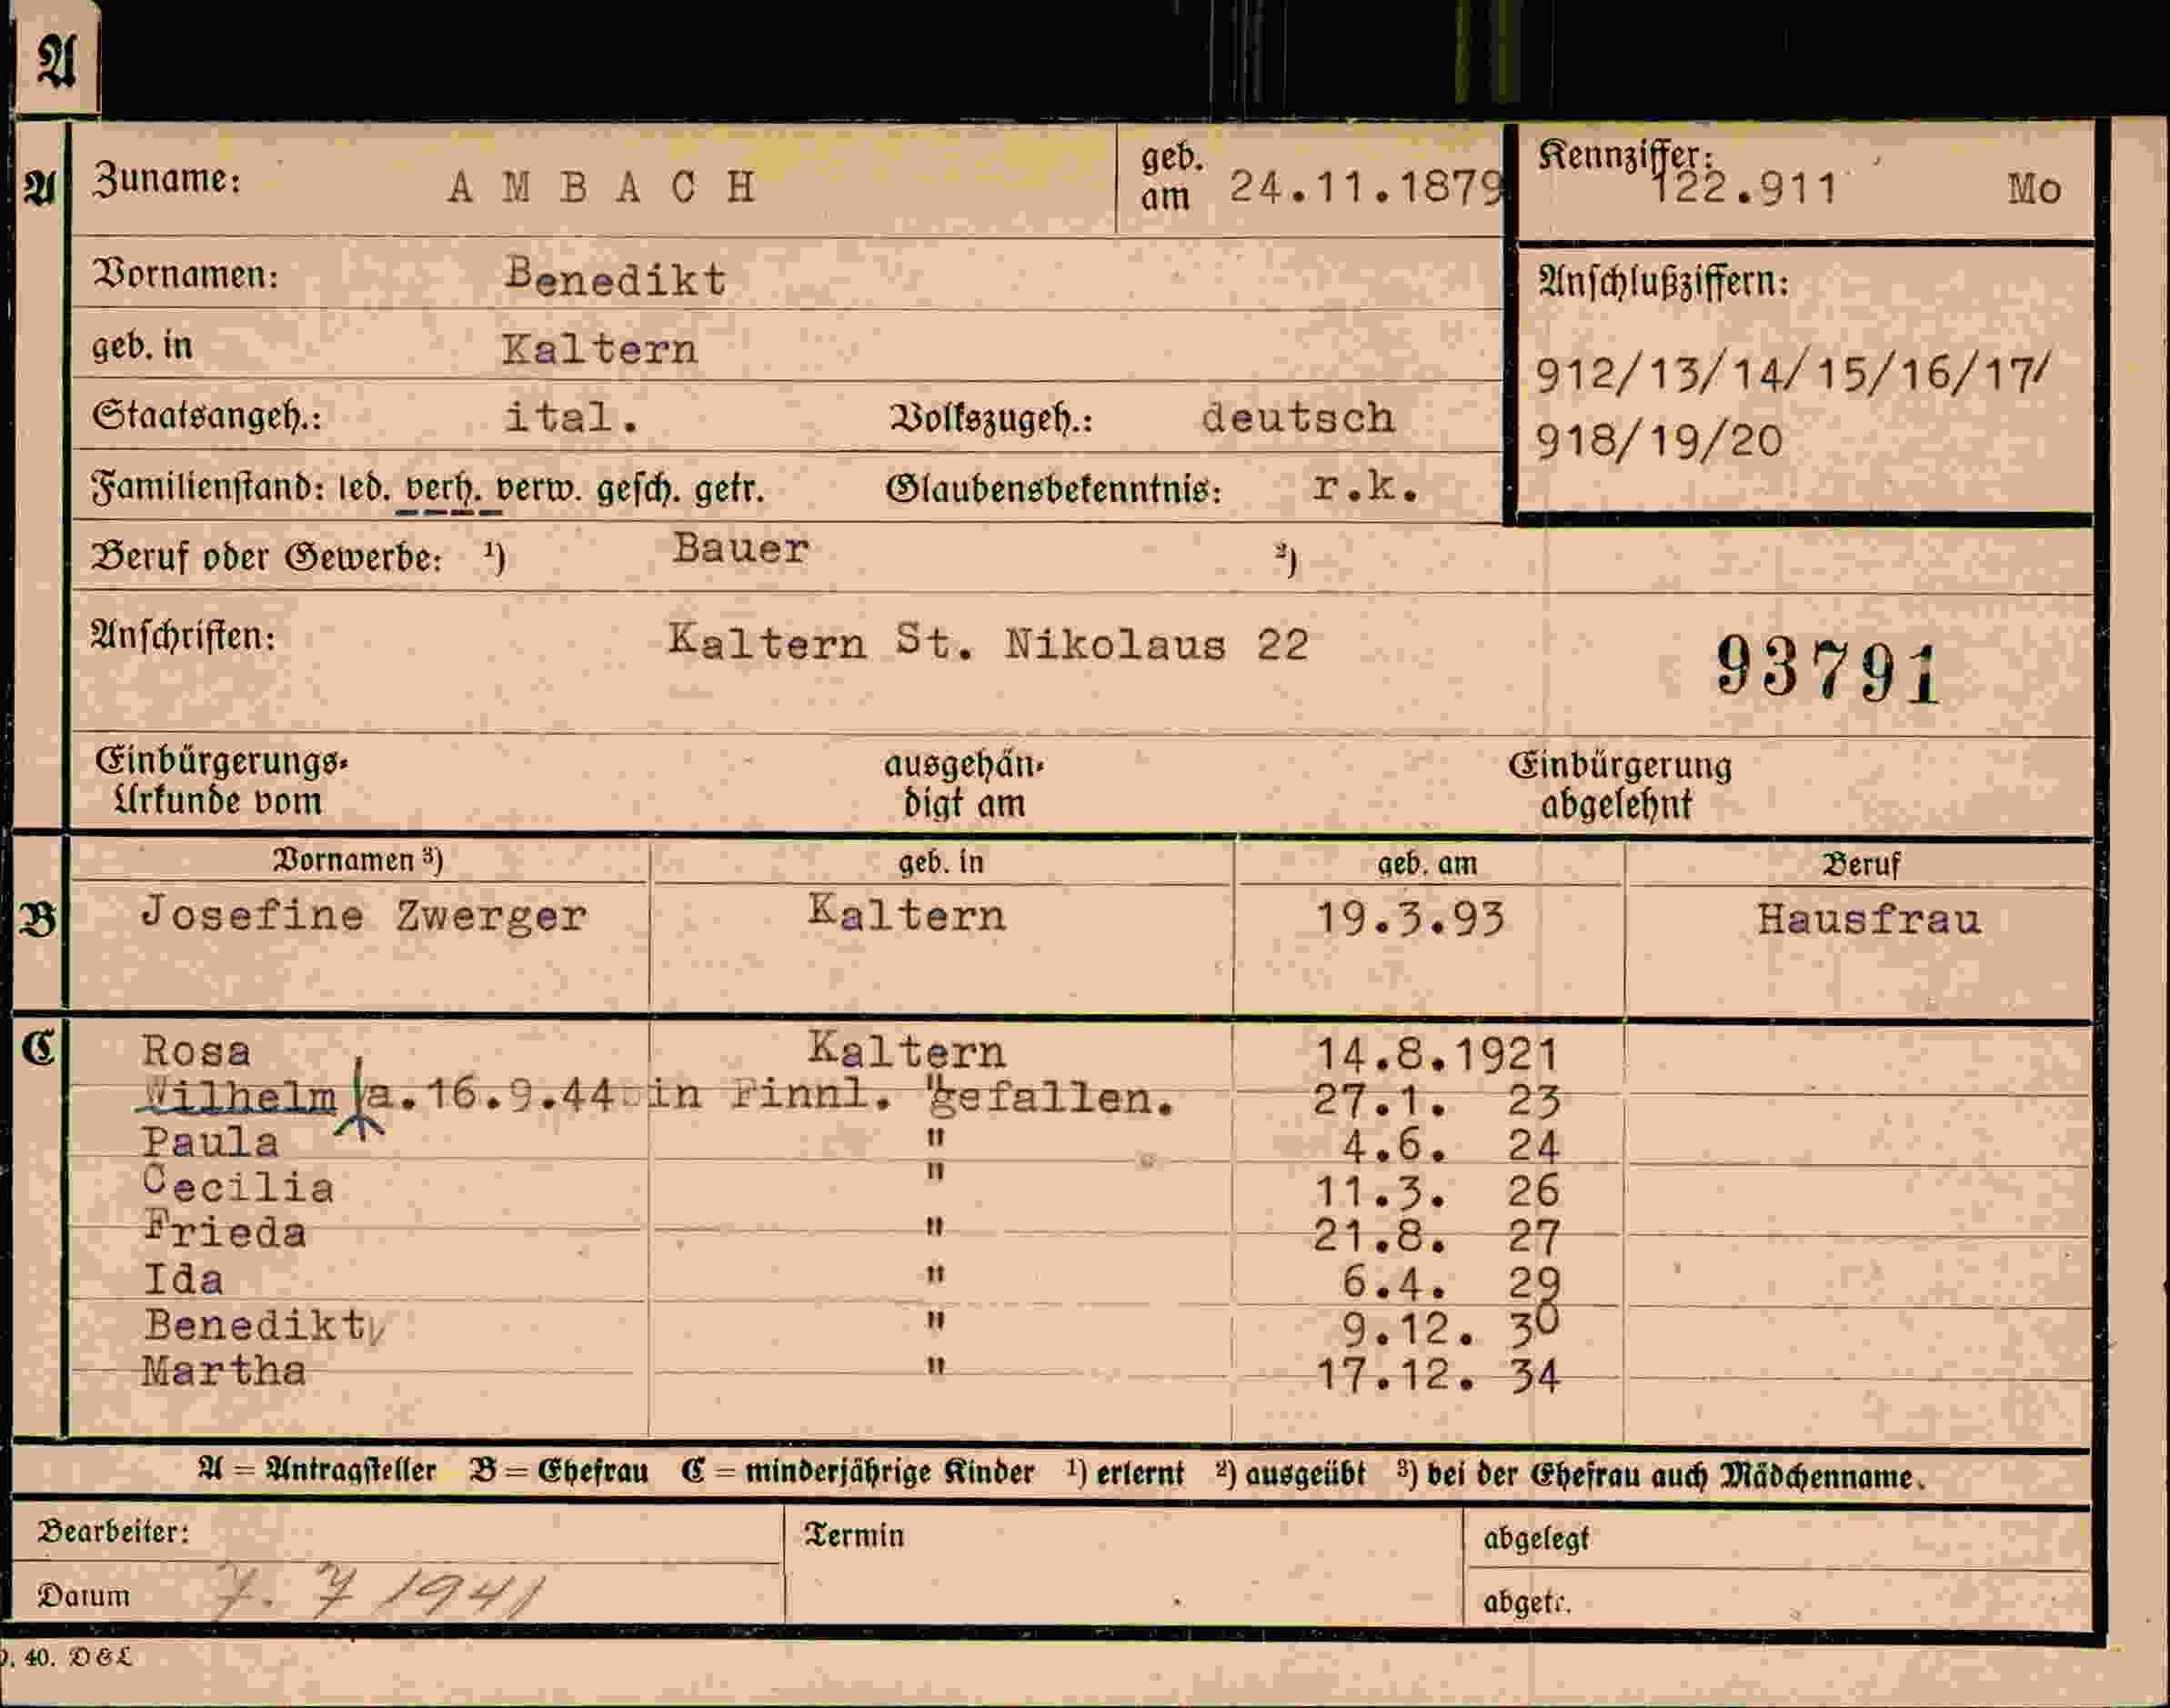 A
A Zuname: AMBACH geb. am 24.11.1879 Kennziffer: 122.911 Mo
Vornamen: Benedikt Anschlußziffern:
geb. in Kaltern 912/13/14/15/16/17/
Staatsangeh.: ital. Volkszugeh.: deutsch 918/19/20
Familienstand: led. verh. verw. gesch. getr. Glaubensbekenntnis: r.k.
Beruf oder Gewerbe: ¹) Bauer ²)
Anschriften: Kaltern St. Nikolaus 22 93791
Einbürgerungs- ausgehän- Einbürgerung
Urkunde vom digt am abgelehnt
Vornamen ³) geb. in geb. am Beruf
B Josefine Zwerger Kaltern 19.3.93 Hausfrau
C Rosa Kaltern 14.8.1921
Wilhelm a. 16.9.44 in Finnl. " gefallen. 27.1. 23
Paula " 4.6. 24
Cecilia " 11.3. 26
Frieda " 21.8. 27
Ida " 6.4. 29
Benedikt " 9.12. 30
Martha " 17.12. 34
A = Antragsteller B = Ehefrau C = minderjährige Kinder ¹) erlernt ²) ausgeübt ³) bei der Ehefrau auch Mädchenname.
Bearbeiter: Termin abgelegt
Datum 7. 7 1941 abgetr.
. 40. D&L